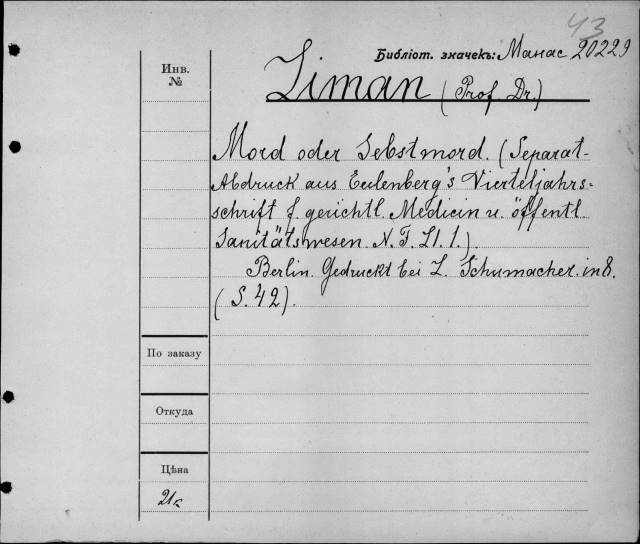 43
Библіот. значекъ: Манас 20229
Инв.
№
Liman (Prof. Dr.)
Mord oder Selbstmord. (Separat-
Abdruck aus Eulenberg's Vierteljahrs=
schrift f. gerichtl. Medicin u. öffentl.
Sanitätswesen. N. F. LI. 1.)
Berlin. Gedruckt bei L. Schumacher. in 8.
(S. 42).
По заказу
Откуда
Цѣна
21к